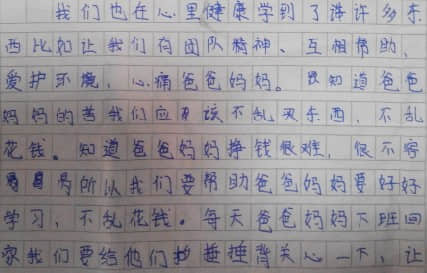 我们也在心里健康学到了许许多东
西比如让我们有团队精神、互相帮助、
爱护环境,心痛爸爸妈妈。我知道爸爸
妈妈的苦我们应该不乱买东西,不乱
花钱。知道爸爸妈妈挣钱很难,很不容
易所以我们要帮助爸爸妈妈要好好
学习,不乱花钱。每天爸爸妈妈下班回
家我们要给他们捶捶背关心一下,让